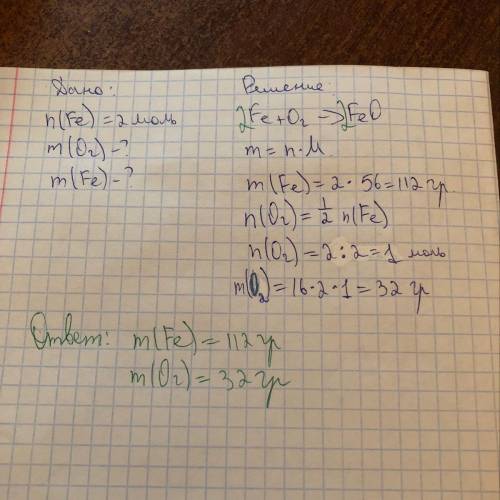 Дано:
n(Fe) = 2 моль
m(O₂) - ?
m(Fe) - ?
Решение:
2Fe + O₂ → 2FeO
m = n · M
m(Fe) = 2 · 56 = 112 гр.
n(O₂) = 1/2 n(Fe)
n(O₂) = 2 : 2 = 1 моль
m(O₂) = 16 · 2 · 1 = 32 гр
Ответ: m(Fe) = 112 гр
m(O₂) = 32 гр